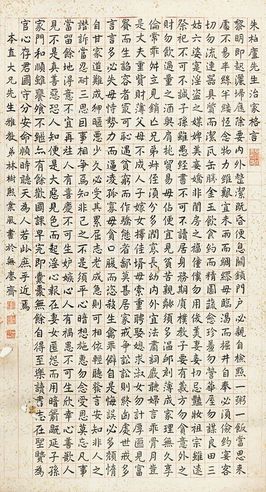 朱柏廬先生治家格言
黎明即起灑掃庭除要內外整潔既昏便息關鎖門戶必親自檢點一粥一飯當思來
處不易半絲半縷恒念物力維艱宜未雨而綢繆毋臨渴而掘井自奉必須儉約宴客
切勿流連器具質而潔瓦缶勝金玉飲食約而精園蔬愈珍羞勿營華屋勿謀良田三
姑六婆實淫盜之媒婢美妾嬌非閨房之福僮僕勿用俊美妻妾切忌豔妝祖宗雖遠
祭祀不可不誠子孫雖愚經書不可不讀居身務期質樸教子要有義方勿貪意外之
財勿飲過量之酒與肩挑貿易毋佔便宜見貧苦親鄰須多溫卹刻薄成家理無久享
倫常乖舛立見銷亡兄弟叔姪須分多潤寡長幼內外宜法肅辭嚴聽婦言乖骨肉豈
是丈夫重貲財薄父母不成人子嫁女擇佳壻毋索重聘娶媳求淑女勿計厚奩見富
貴而生諂容者最可恥遇貧窮而作驕態者賤莫甚居家戒爭訟訟則終凶處世戒多
言言多必失毋恃勢力而凌逼孤寡毋貪口腹而恣殺生禽乖僻自是悔誤必多頹惰
自甘家道難成狎暱惡少久必受其累屈志老成急則可相依輕聽發言安知非人之
譖訴當忍耐三思因事相爭焉知非己之不是須平心暗想施惠勿念受恩莫忘凡事
當留餘地得意不宜再往人有喜慶不可生妒嫉心人有禍患不可生欣幸心善欲人
見不是真善惡恐人知便是大惡見色而起淫心報在妻女匿怨而用暗箭禍延子孫
家門和順雖饔飧不繼亦有餘歡國課早完即囊橐無餘自得至樂讀書志在聖賢為
官心存君國守分安命順時聽天為人若此庶乎近焉
本直大兄先生雅教 弟林樹熙業風書於無齋